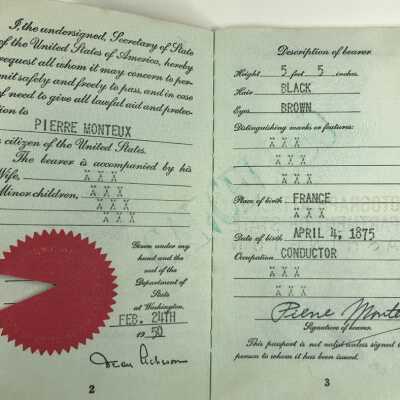 I, the undersigned, Secretary of State
of the United States of America, hereby
request all whom it may concern to per-
mit safely and freely to pass, and in case
of need to give all lawful aid and protec-
tion to
PIERRE MONTEUX
a citizen of the United States.
The bearer is accompanied by his
Wife, X X X
Minor children, X X X
X X X
X X X
Given under my
hand and the
seal of the
Department of
State
at Washington,
FEB. 24TH
1950
Dean Acheson
2
Description of bearer
Height 5 feet 5 inches.
Hair BLACK
Eyes BROWN
Distinguishing marks or features:
X X X
X X X
X X X
Place of birth FRANCE
X X X
Date of birth APRIL 4, 1875
Occupation CONDUCTOR
X X X
X X X
Pierre Monteux
Signature of bearer.
This passport is not valid unless signed
person to whom it has been issued.
3